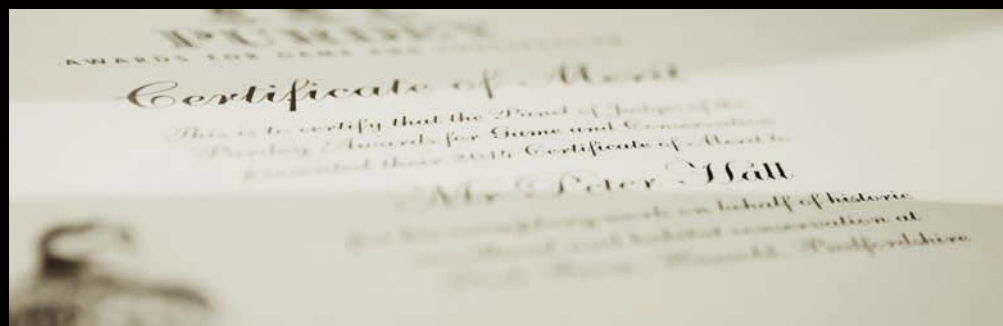 PURDEY
AWARDS FOR GAME AND CONSERVATION
Certificate of Merit
This is to certify that the Panel of Judges of the
Purdey Awards for Game and Conservation
presented their 2014 Certificate of Merit to
Mr Peter Hall
for his exemplary work on behalf of historic
and habitat conservation at
Bedfordshire